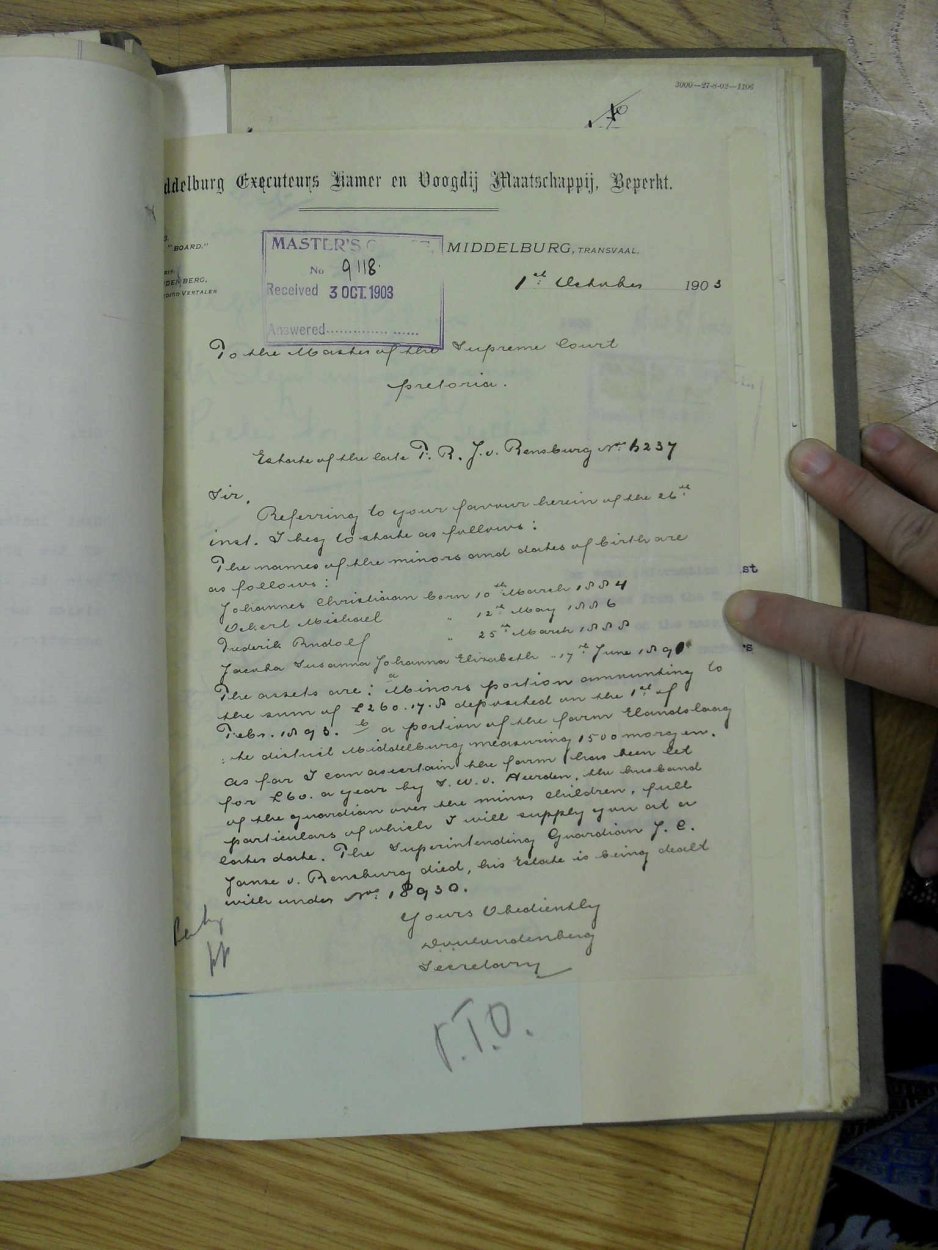 3000—27-8-02—1196
ddelburg Executeurs Kamer en Voogdij Maatschappij, Beperkt.
"BOARD."
MASTER'S
MIDDELBURG, TRANSVAAL.
No 9118.
BERG,
VERTALER
Received 3 OCT. 1903
1st October 1903
Answered
To the Master of the Supreme Court
Pretoria.
Estate of the late P. R. J. v. Rensburg No. 6237
Sir,
Referring to your favour herein of the 26th
inst. I beg to state as follows:
The names of the minors and dates of birth are
as follows:
Johannes Christiaan born 10th March 1884
Ockert Michael " 12th May 1886
Frederik Rudolf " 25th March 1888
Jacoba Susanna Johanna Elizabeth " 17th June 1890
The assets are: a Minors portion amounting to
the sum of £260.17.8 deposited on the 1st of
Febr. 1893. b a portion of the farm Elandslaag
district Middelburg measuring 1500 morgen.
As far I can ascertain the farm has been let
for £60. a year by v. Heerden, the husband
of the guardian over the minor children, full
particulars of which I will supply you at a
later date. The Superintending Guardian J. C.
Janse v. Rensburg died, his Estate is being dealt
with under No. 18930.
Yours Obediently
Secretary
P.T.O.